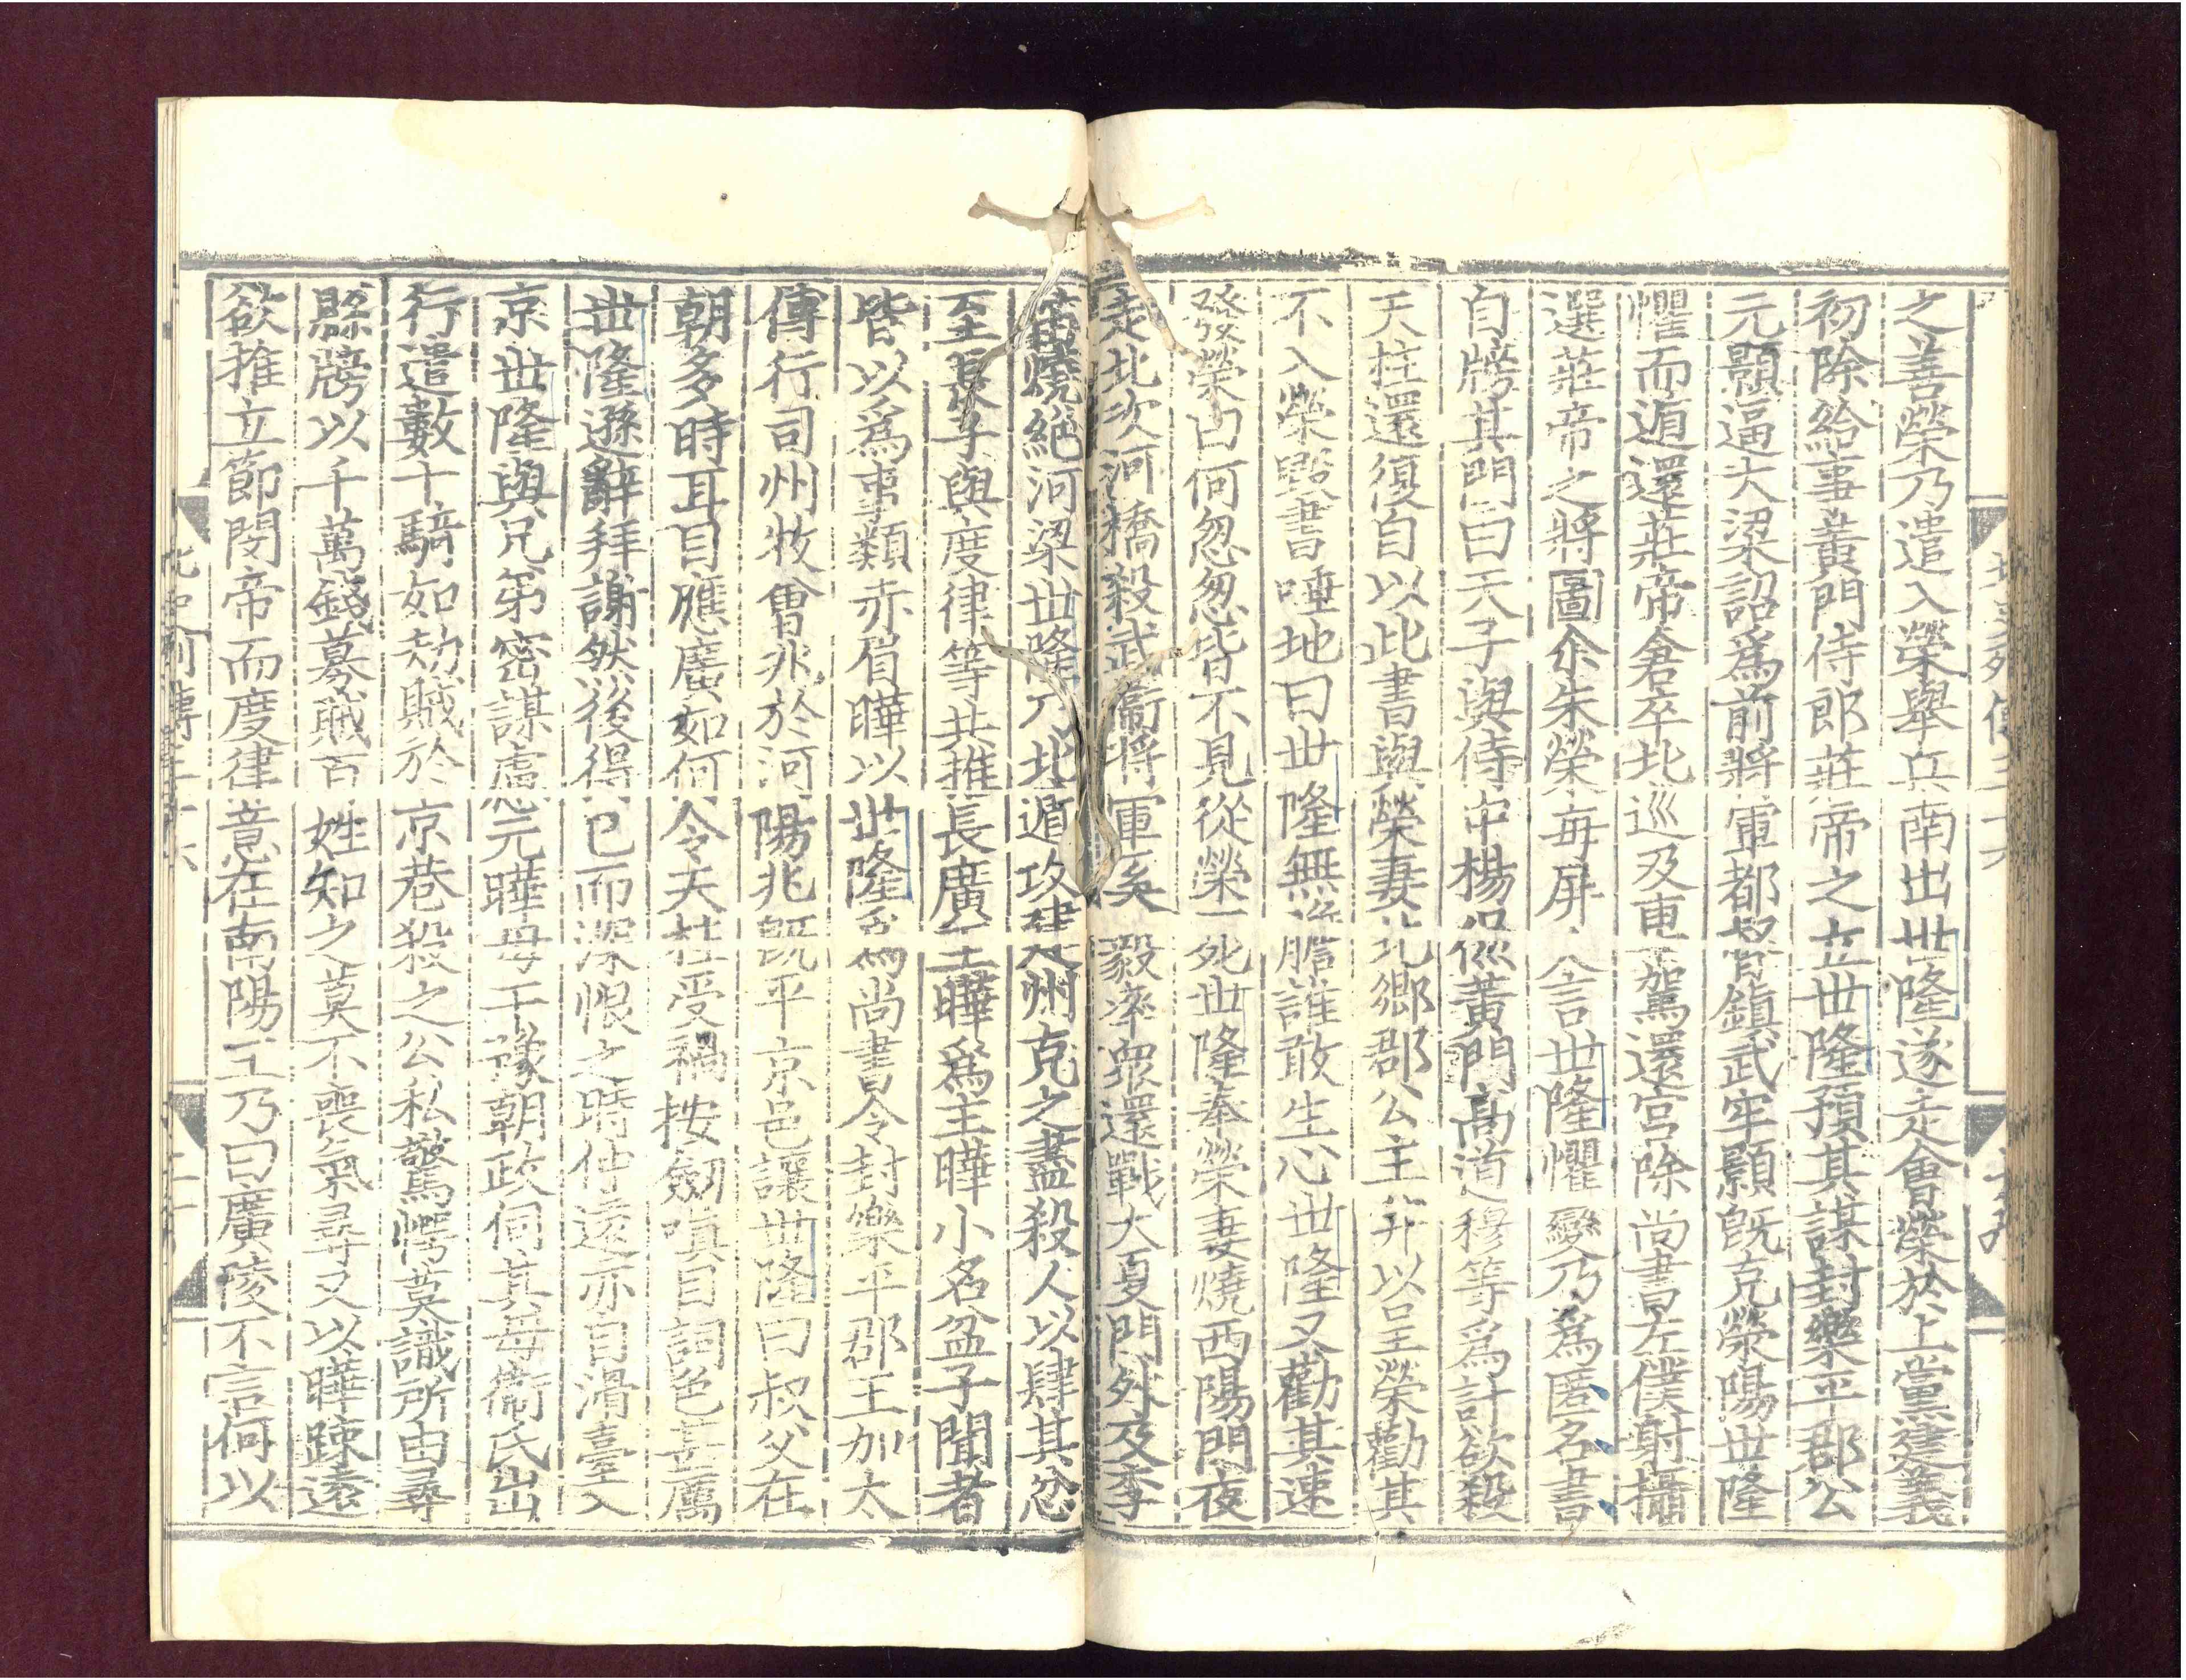 之善榮乃遣入榮舉兵南出世隆遂走會榮於上黨建義
初除給事黃門侍郎莊帝之立世隆預其謀封樂平郡公
元顥逼大梁詔爲前將軍都督鎮武牢顥旣克滎陽世隆
懼而遁還莊帝倉卒北巡及車駕還宮除尚書左僕射攝
選莊帝之將圖尒朱榮每屏人言世隆懼變乃爲匿名書
自牓其門曰天子與侍中楊侃黃門高道穆等爲計欲殺
天柱還復自以此書與榮妻北鄉郡公主并以呈榮勸其
不入榮毀書唾地曰世隆無膽誰敢生心世隆又勸其速
發榮曰何怱怱皆不見從榮死世隆奉榮妻燒西陽門夜
走北次河橋殺武衞將軍奚毅率衆還戰大夏門外及李
苗燒絕河梁世隆乃北遁攻建州克之盡殺人以肆其忿
至長子與度律等共推長廣王曄爲主曄小名盆子聞者
皆以爲事類赤眉曄以世隆爲尚書令封樂平郡王加太
傅行司州牧會兆於河陽兆旣平京邑讓世隆曰叔父在
朝多時耳目應廣如何令天柱受禍按劒嗔目詞色甚厲
世隆遜辭拜謝然後得已而深恨之時仲遠亦自滑臺入
京世隆與兄弟密謀慮元曄母干豫朝政伺其母衞氏出
行遣數十騎如劫賊於京巷殺之公私驚愕莫識所由尋
縣牓以千萬錢募賊百姓知之莫不喪氣尋又以曄踈遠
欲推立節閔帝而度律意在南陽王乃曰廣陵不言何以